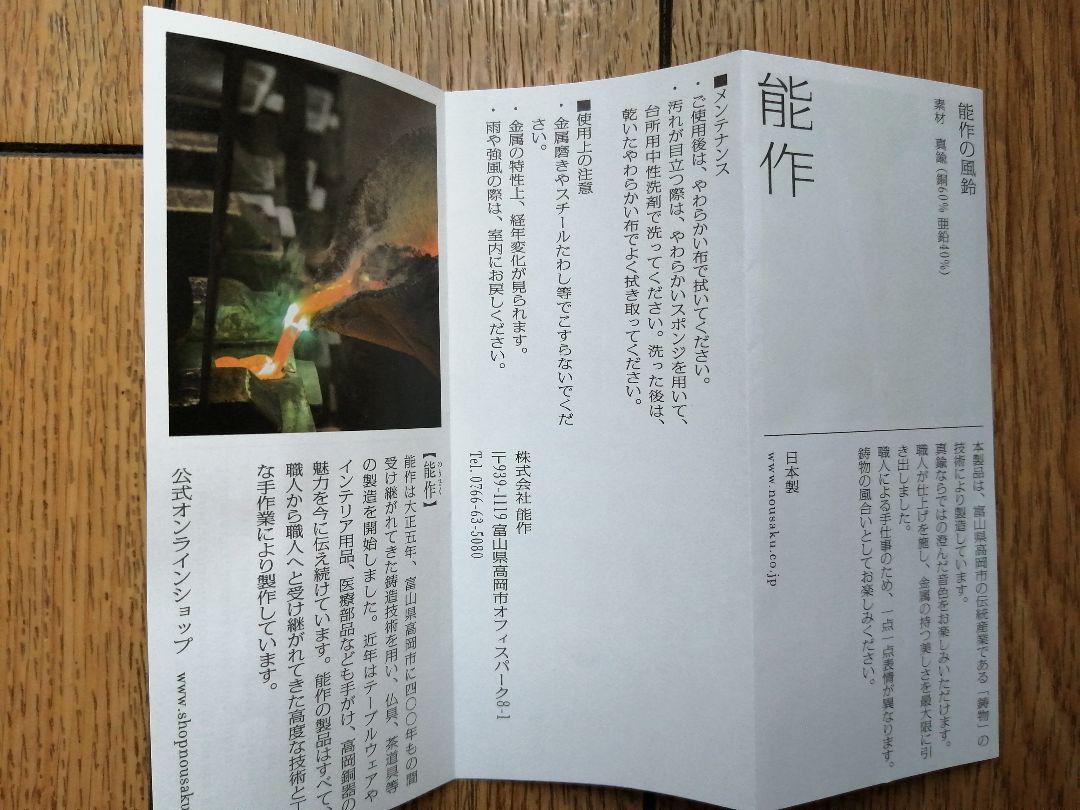 能作の風鈴
素材　真鍮（銅60% 亜鉛40%）
能作
本製品は、富山県高岡市の伝統産業である「鋳物」の
技術により製造しています。
真鍮ならではの澄んだ音色をお楽しみいただけます。
職人が仕上げを施し、金属の持つ美しさを最大限に引
き出しました。
職人による手仕事のため、一点一点表情が異なります。
鋳物の風合いとしてお楽しみください。
日本製
www.nousaku.co.jp
■メンテナンス
・ご使用後は、やわらかい布で拭いてください。
・汚れが目立つ際は、やわらかいスポンジを用いて、
台所用中性洗剤で洗ってください。洗った後は、
乾いたやわらかい布でよく拭き取ってください。
■使用上の注意
・金属磨きやスチールたわし等でこすらないでくだ
さい。
・金属の特性上、経年変化が見られます。
・雨や強風の際は、室内にお戻しください。
株式会社 能作
〒939-1119 富山県高岡市オフィスパーク8-1
Tel. 0766-63-5080
【能作】
のうさく
能作は大正五年、富山県高岡市に四〇〇年もの間
受け継がれてきた鋳造技術を用い、仏具、茶道具等
の製造を開始しました。近年はテーブルウェアや
インテリア用品、医療部品なども手がけ、高岡銅器の
魅力を今に伝え続けています。能作の製品はすべて、
職人から職人へと受け継がれてきた高度な技術と
な手作業により製作しています。
公式オンラインショップ　www.shopnousaku